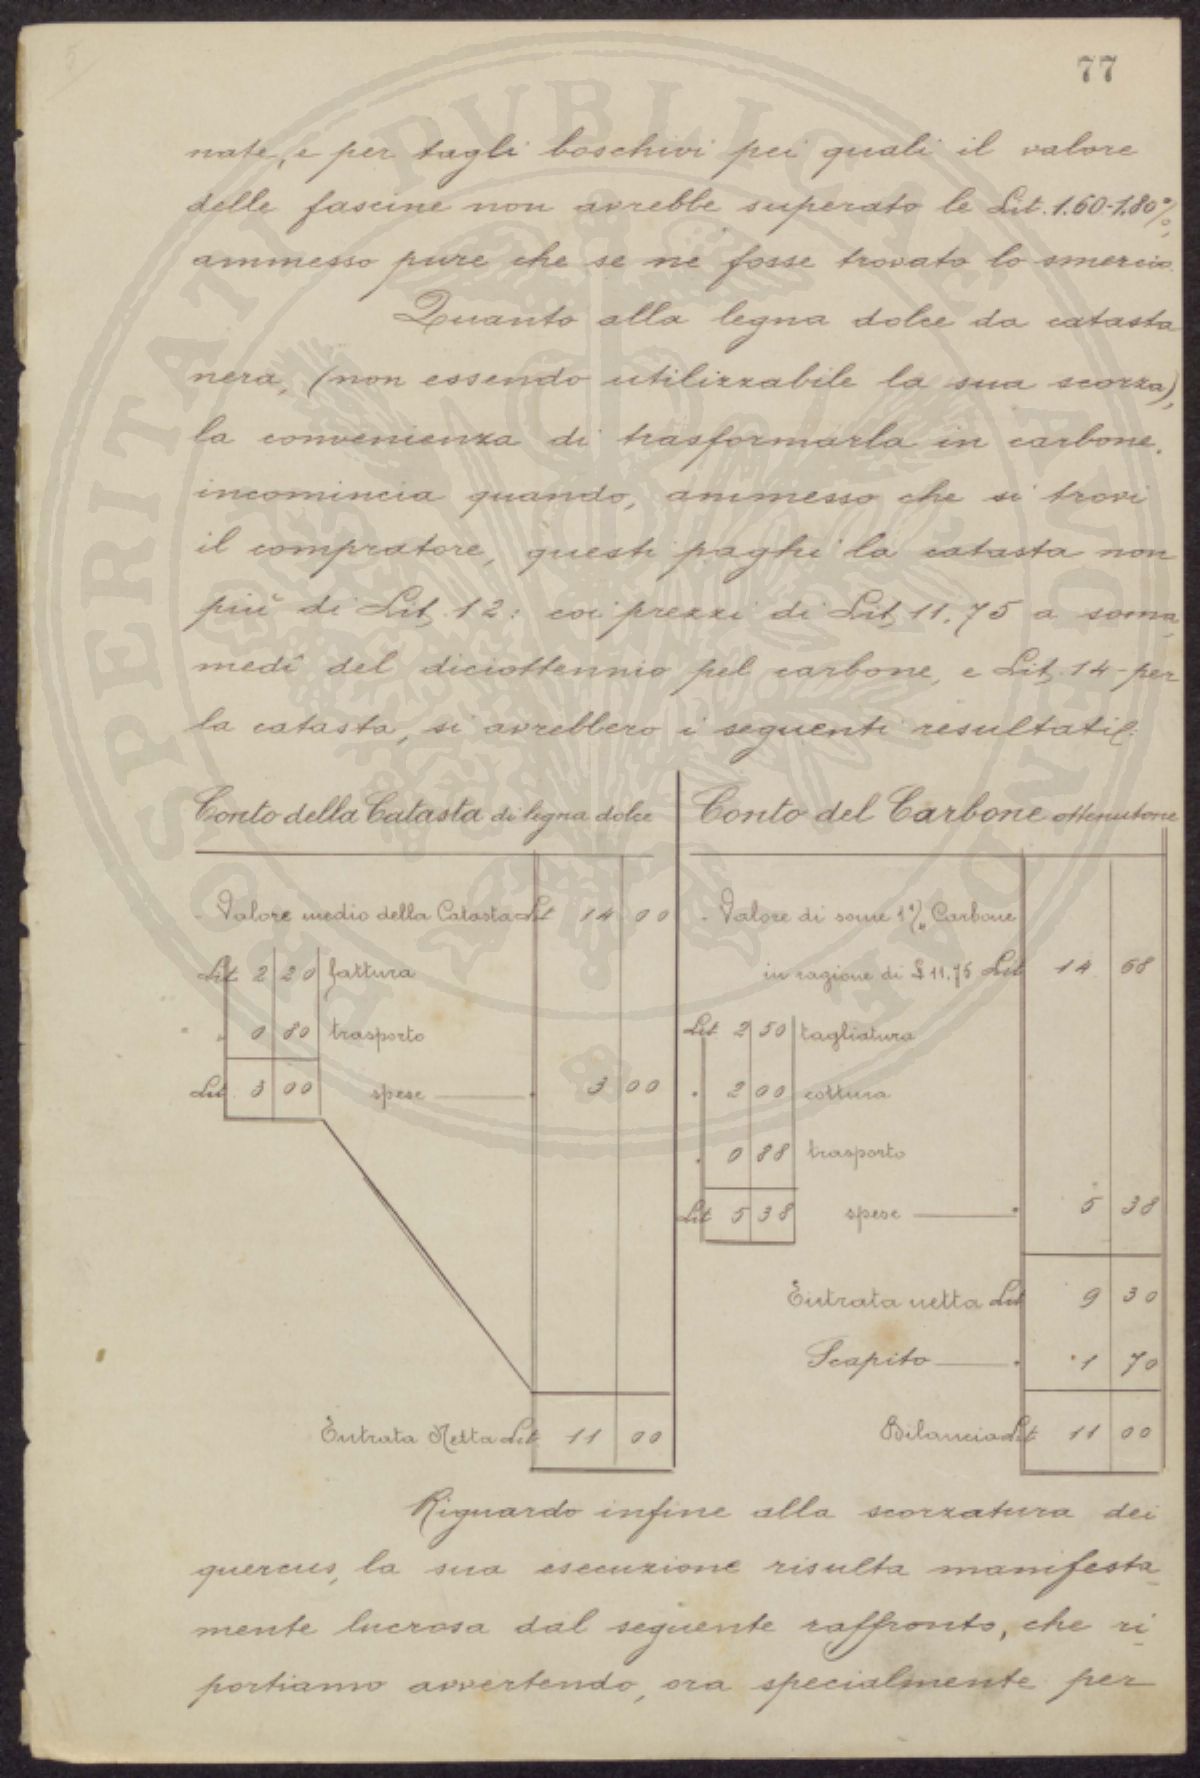 77
nate, e per tagli boschivi pei quali il valore
delle fascine non avrebbe superato le Lit. 1.60-1.80 %,
ammesso pure che se ne fosse trovato lo smercio.
Quanto alla legna dolce da catasta
nera, (non essendo utilizzabile la sua scorza),
la convenienza di trasformarla in carbone,
incomincia quando, ammesso che si trovi
il compratore, questi paghi la catasta non
più di Lit. 12: coi prezzi di Lit. 11.75 a soma,
medî del diciottennio pel carbone, e Lit. 14 - per
la catasta, si avrebbero i seguenti resultati:
Conto della Catasta di legna dolce
Valore medio della Catasta Lit 14 00
Lit 2 20 fattura
" 0 80 trasporto
Lit 3 00 spese — " 3 00
Entrata Netta Lit 11 00
Conto del Carbone ottenutone
- Valore di some 1 ¼ Carbone
in ragione di £ 11.75 Lit 14 68
Lit 2 50 tagliatura
" 2 00 cottura
" 0 88 trasporto
Lit 5 38 spese — " 5 38
Entrata netta Lit 9 30
Scapito — " 1 70
Bilancia Lit 11 00
Riguardo infine alla scorzatura dei
quercus, la sua esecuzione risulta manifesta-
mente lucrosa dal seguente raffronto, che ri-
portiamo avvertendo, ora specialmente per